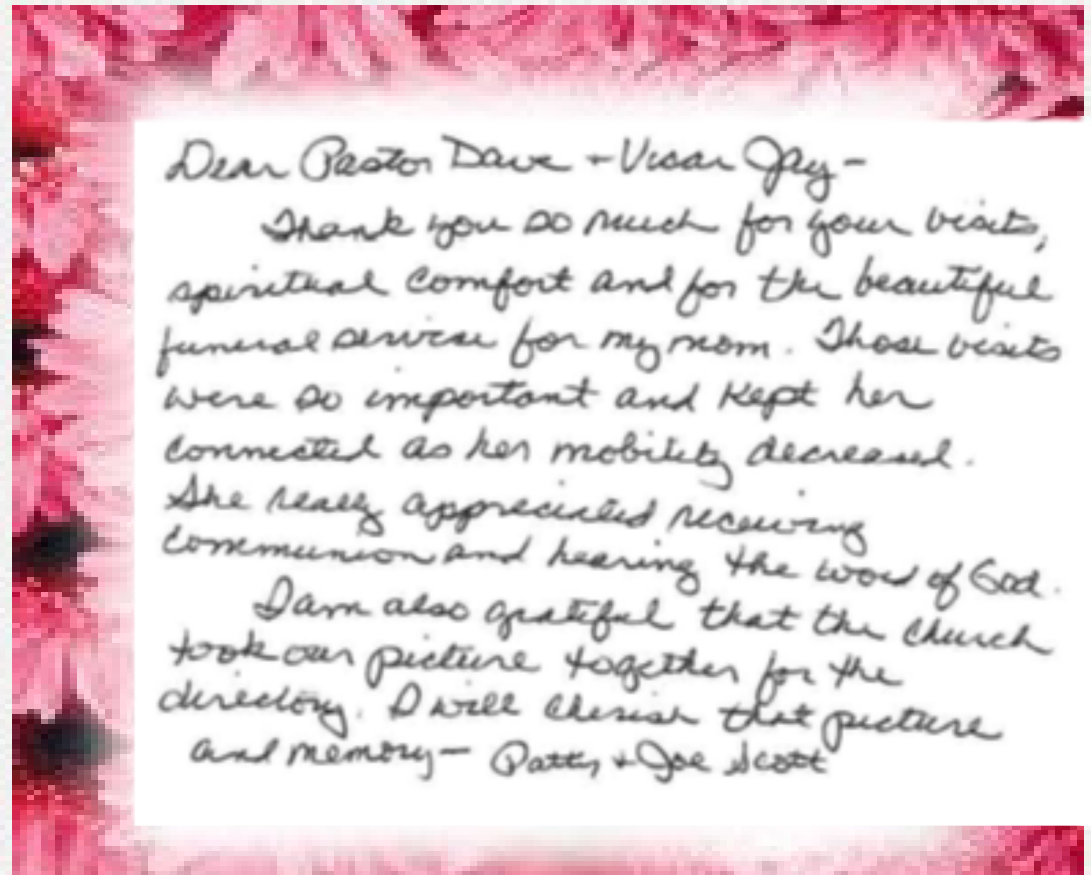 Dear Pastor Dave + Vicar Jay -
Thank you so much for your visits,
spiritual comfort and for the beautiful
funeral service for my mom. Those visits
were so important and kept her
connected as her mobility decreased.
She really appreciated receiving
communion and hearing the word of God.
I am also grateful that the church
took our picture together for the
directory. I will cherish that picture
and memory - Patty + Joe Scott